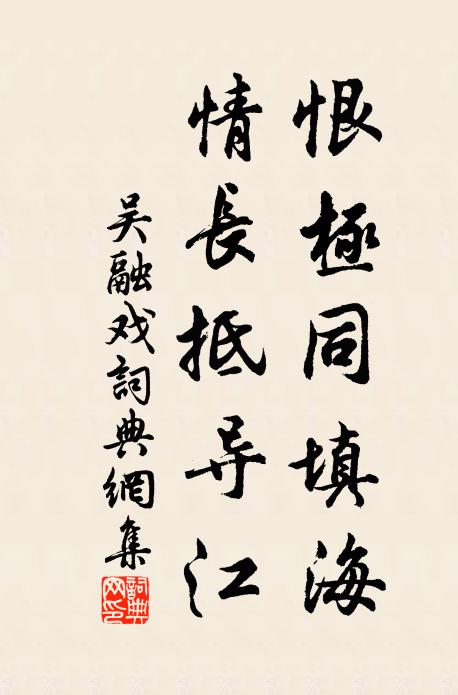 恨極同填海
情長抵导江
吴融戏詞典網集
詞典网印